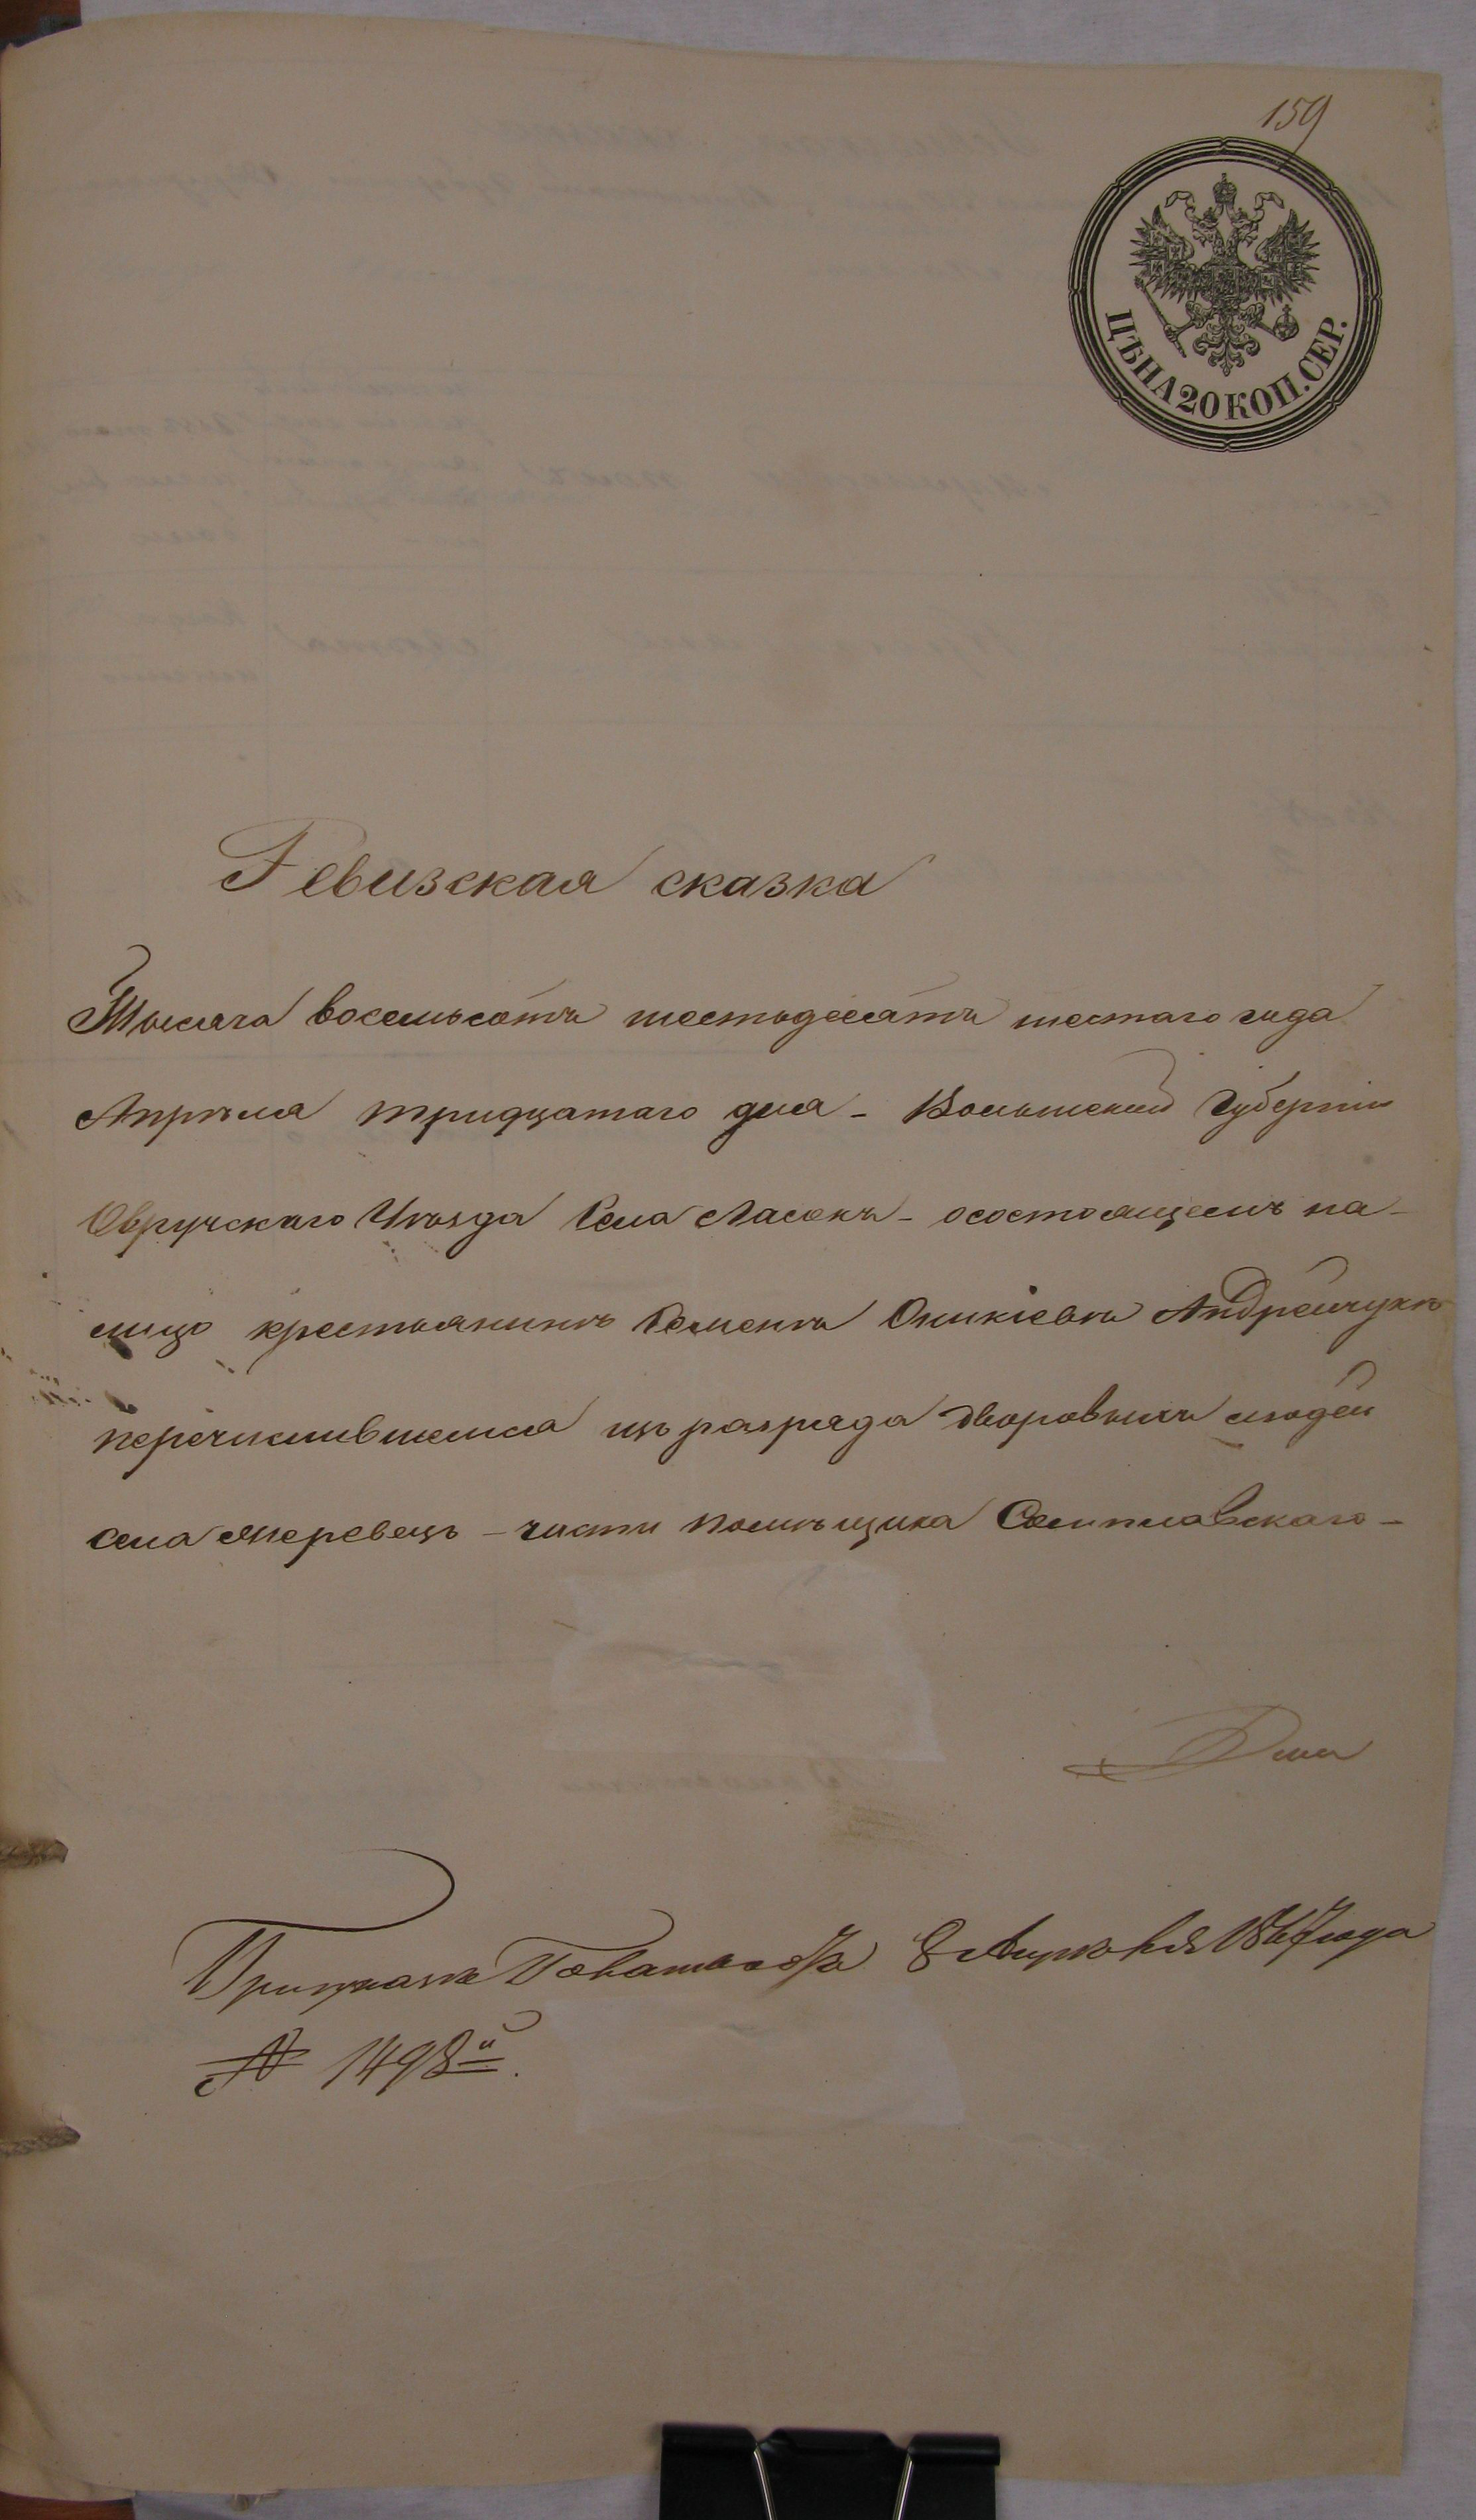 159
ЦѢНА 20 КОП. СЕР.
Ревизская сказка
Тысяча восемьсотъ шестьдесятъ шестаго года
Апрѣля тридцатаго дня - Волынской Губерніи
Овручскаго Уѣзда Села Ласокъ - осостоящемъ на-
лицо крестьянинѣ Семенѣ Оникіевѣ Андрейчукѣ
перечислившемся изъ разряда дворовыхъ людей
села Жеревецъ - части помѣщика
8 Апрѣля 1867 года
№ 1498й.